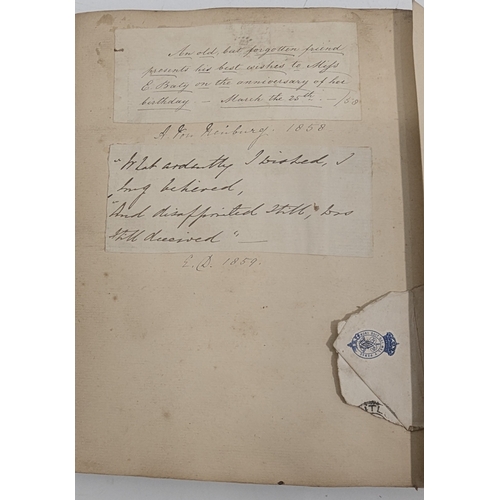 An old, but forgotten friend
presents his best wishes to Miss
E. Braly on the anniversary of her
birthday — March the 25th. — /58
A. Von 1858
"What ardently I wished, I
long believed,
"And disappointed still, was
still deceived" —
E. D. 1859.